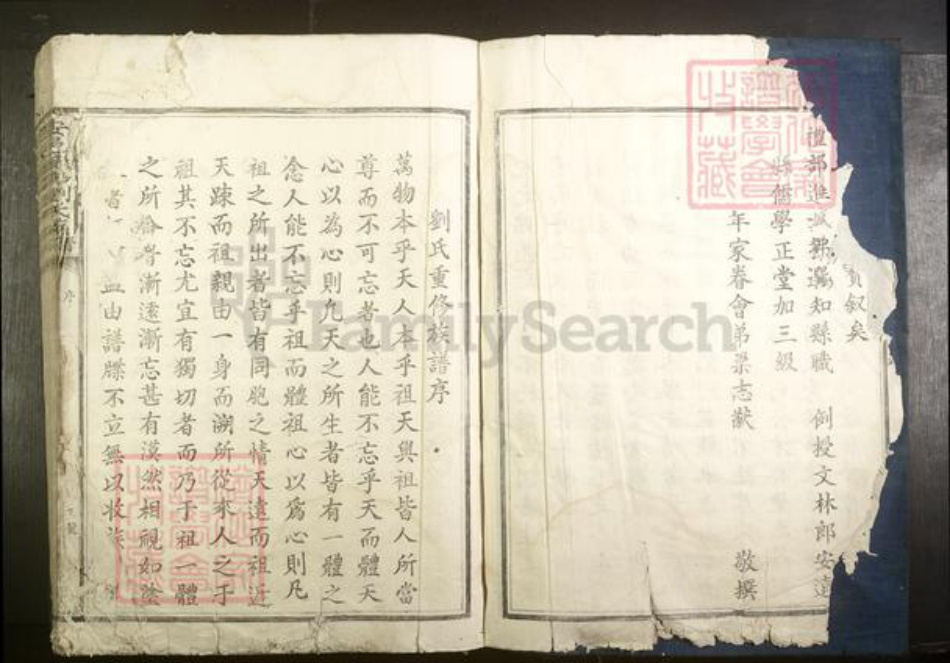 負叙矣
禮部進士知縣職 例授文林郎安遠
縣儒學正堂加三級
年家眷會弟梁志猷 敬撰
劉氏重修族譜序
萬物本乎天人本乎祖天與祖皆人所當
尊而不可忘者也人能不忘乎天而體天
心以為心則凢天之所生者皆有一體之
念人能不忘乎祖而體祖心以爲心則凡
祖之所出者皆有同胞之情天遠而祖近
天踈而祖親由一身而溯所從來人之于
祖其不忘尤宜有獨切者而乃于祖一體
之所者漸遠漸忘甚有漠然相視如塗
者由譜牒不立無以收族
序
FamilySearch
譜學會
收藏